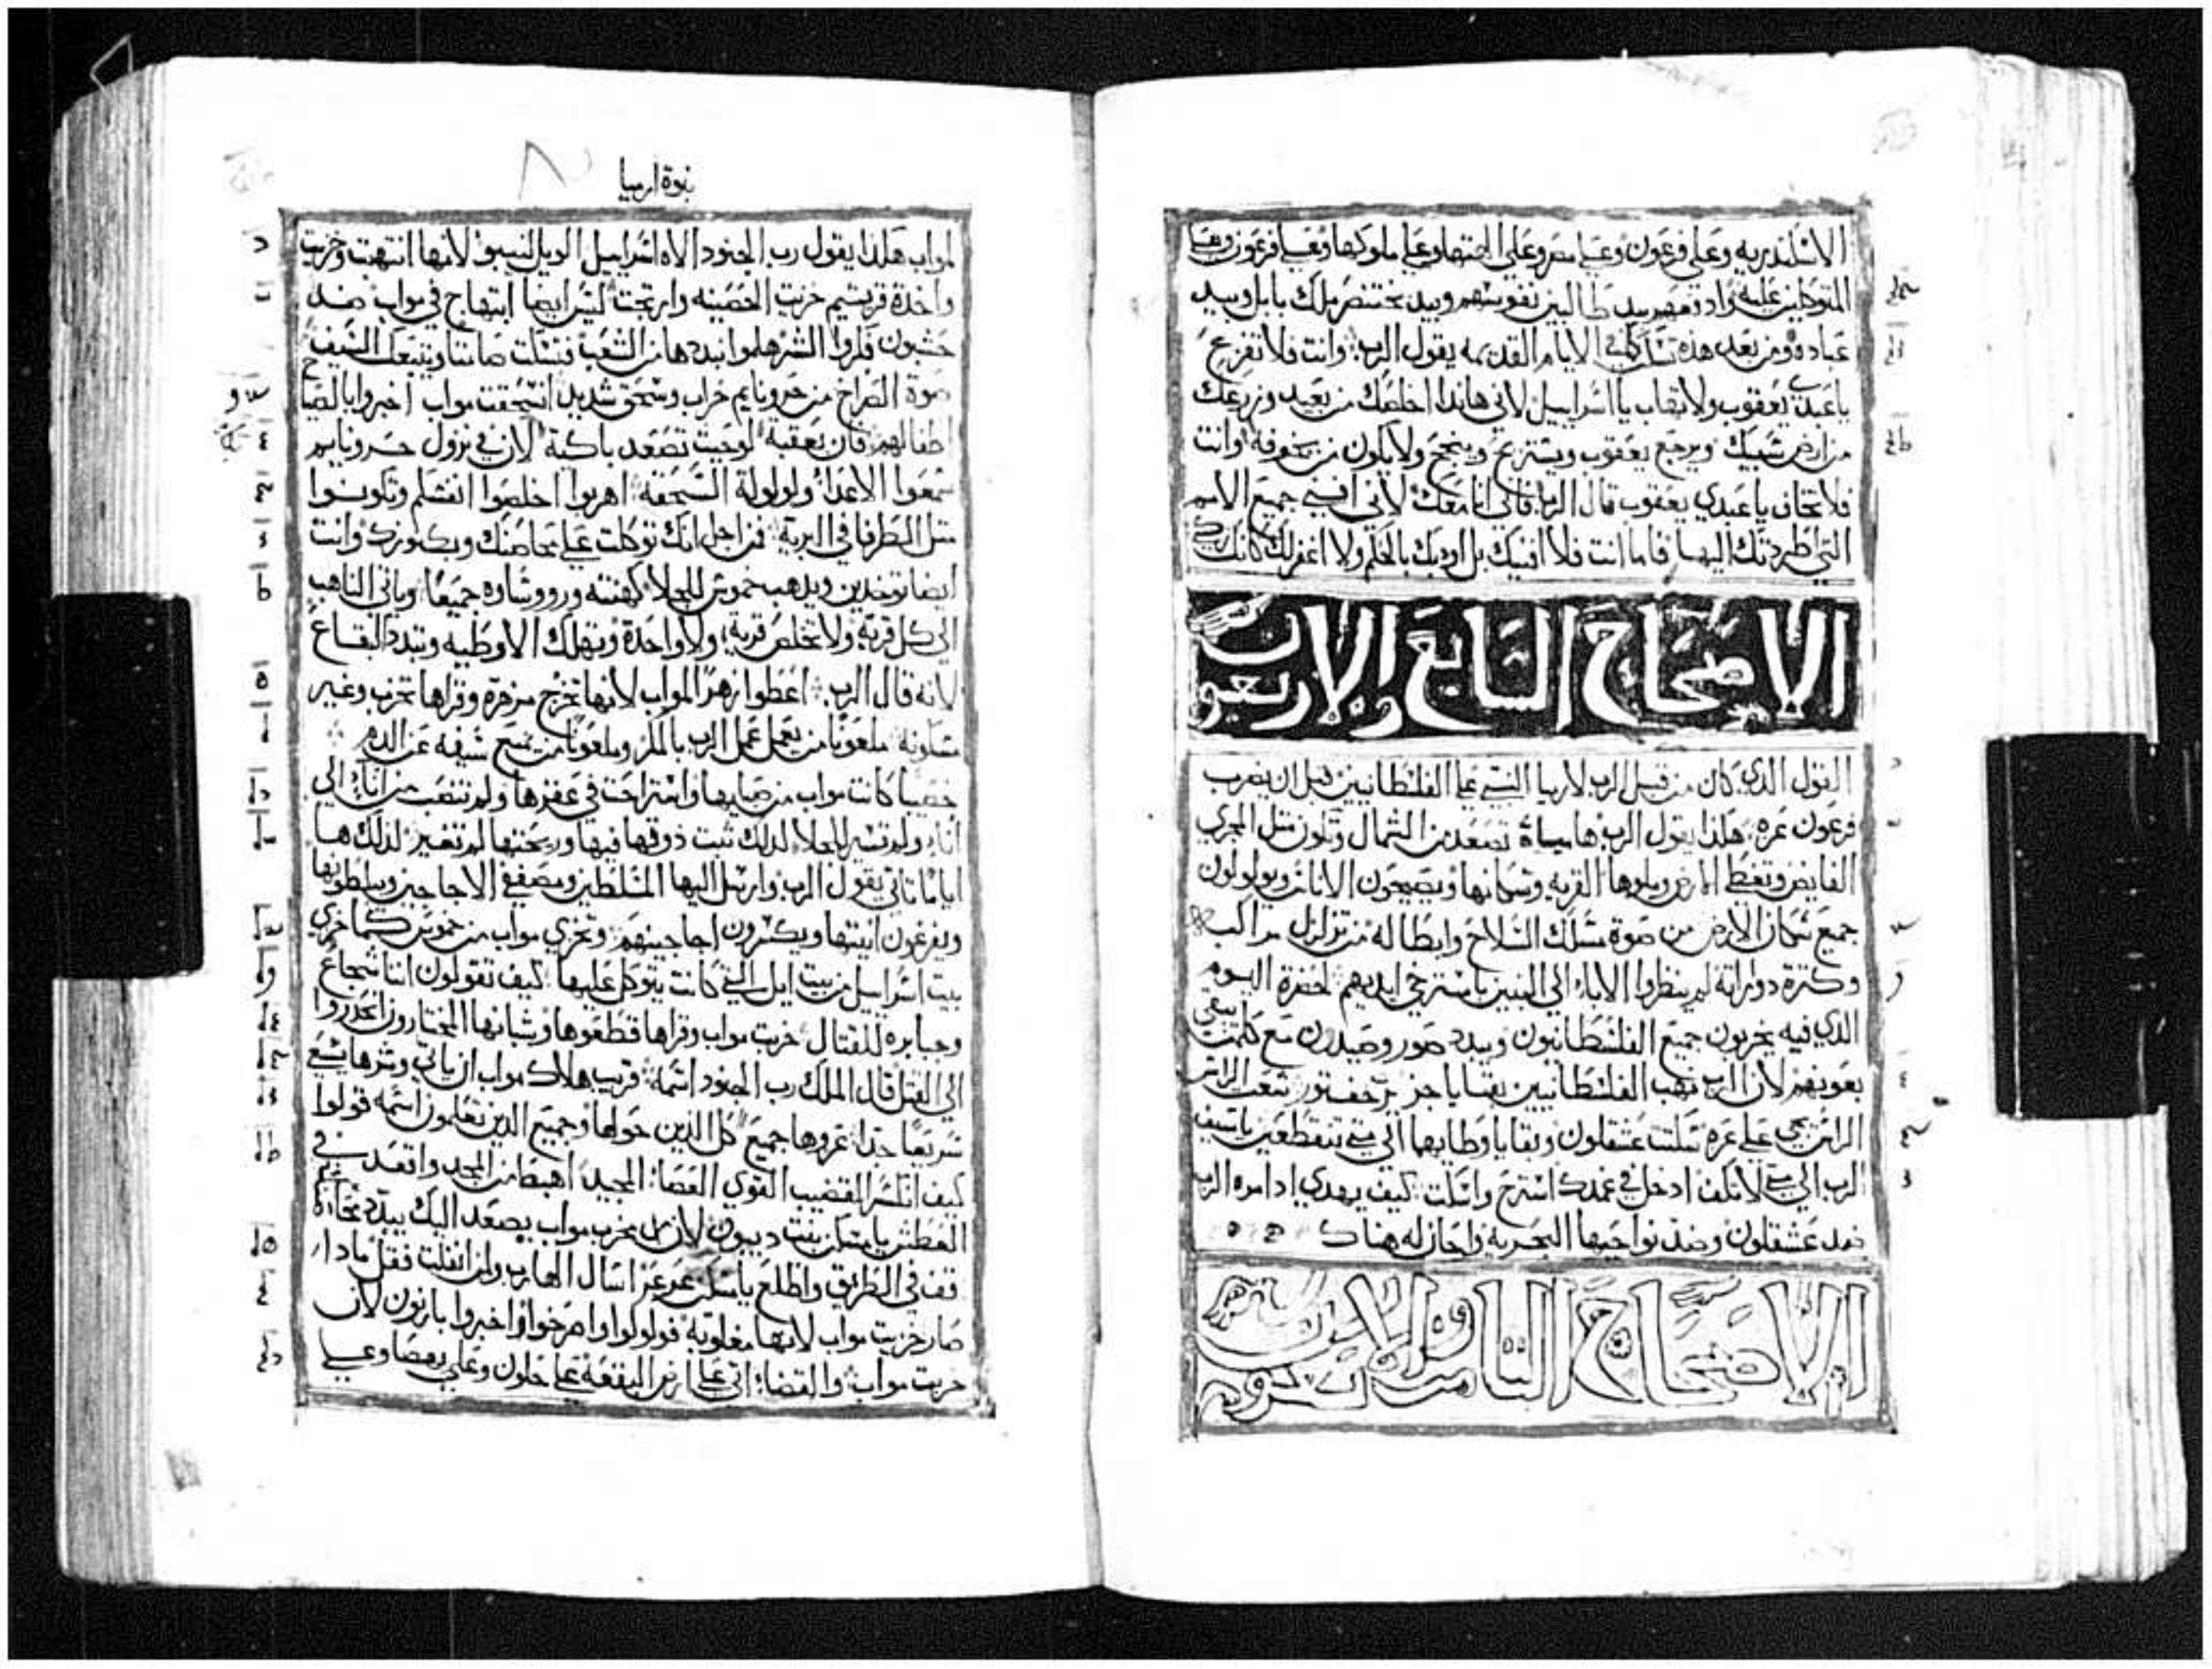 الاسكندريه وعلى فرعون وعلى مصر وعلى الهتها وعلى ملوكها وعلى فرعون وعلى
المتوكلين عليه وادفعهم بيد طالبين نفوسهم وبيد بختنصر ملك بابل وبيد
عباده ومن بعد هذه تسكن كما في الايام القديمه يقول الرب وانت فلا تفزع
ياعبدي يعقوب ولا تهاب يا اسراييل لاني هاندا اخلصك من بعيد وزرعك
من ارض سبيك ويرجع يعقوب ويستريح وينجح ولا يكون من يخوفه وانت
فلا تخاف ياعبدي يعقوب قال الرب فاني انا معك لاني افني جميع الامم
التي طردتك اليها فاما انت فلا افنيك بل اودبك بالحكم ولا اغفر لك كانك زكي
الاصحاح السابع والاربعون
القول الدي كان من قبل الرب لارميا النبي على الفلسطانيين قبل ان يضرب
فرعون غزه هكذا يقول الرب ها مياة تصعد من الشمال وتكون مثل المجري
الفايض وتغطي الارض وملوها القريه وسكانها ويصيحون الاناس ويولولون
جميع سكان الارض من صوة مسلك السلاح وابطاله من تزلزل مراكبه
وكترة دوراته لم ينظروا الاباء الي البنين باسترخي ايديهم لحضرة اليوم
الدي فيه يخربون جميع الفلسطانيون ويبدد صور وصيدون مع كلمن تبقي
بعونهم لان الرب نهب الفلسطانيين بقايا جز
علي غزه سكتت عشقلون وبقايا وطايهما الي متي تتقطعين ياسيف
الرب الي متي لا تكف ادخل في غمدك استرح واسكت كيف يهدي ادامره الرب
ضد عشقلون وضد نواحيها البحريه واحازله هناك
الاصحاح الثامن والاربعون
نبوة ارميا
لمواب هكذا يقول رب الجنود الاه اسراييل الويل لنيبو لانها انتهبت وخزيت
واخدة قريتيم خزيت الحصينه وارتجت ليس ايضا ابتهاج في مواب ضد
حشبون فكروا الشر هلموا نبددها من الشعب فتسكت صامتا ويتبعك السيف
صوة الصراخ من حرونايم خراب وسحق شديد انسحقت مواب اخبروا بالصياح
اطفالهم فان بعقبة لوحيت تصعد باكية لان في نزول حرونايم
سمعوا الاعداء ولولولة السحقة اهربوا اخلصوا انفسكم وتكونوا
متل الطرفا في البرية فمن اجل انك توكلت على محاصنك وبكنوزك وانت
ايضا توخدين ويدهب خموش للجلا كهنته وروشاوه جميعا وياتي الناهب
الي كل قرية ولا تخلص قرية ولا واحدة وتهلك الاوطيه وتبدد البقاع
لانه قال الرب اعطوا زهر المواب لانها تخرج مزهرة وقراها تخرب وغير
مسكونه ملعونا من يعمل عمل الرب بالمكر وملعونا من يمنع سيفه عن الدم
خصيبا كانت مواب من صبايها واستراحت في عقرها ولم تنصب من اناء الي
اناء ولم تسير للجلا لدلك تبت دوقها فيها وريحتها لم تتغير لدلك ها
اياما تاتي يقول الرب وارسل اليها المسلطين ومصففي الاجاجين ويسلطونها
ويفرغون انيتها ويكسرون اجاجينهم وتخزي مواب من خموش كما خزي
بيت اسراييل من بيت ايل التي كانت يتوكل عليها كيف تقولون اننا شجاع
وجبابره للقتال خربت مواب وقراها قطعوها وشبانها المختارون انحدروا
الي القتل قال الملك رب الجنود اسمه قريب هلاك مواب ان ياتي وشرها يسع
سريعا جدا عزوها جميع كل الدين حولها وجميع الدين تعلمون اسمه قولوا
كيف انكسر القضيب القوي العصاء المجيد اهبط من المجد واقعد في
العطش يا مسكن بنت ديبون لان مخرب مواب يصعد اليك يبدد
قف في الطريق واطلع يا مسكن عروعير اسال الهارب ولمن انفلت فقل مادا
صار خزيت مواب لانها مغلوبة فولولوا واصرخوا واخبروا بارنون لان
خربت مواب والقضاء اتي على ارض البقعة على حلون وعلى يهصا وعلى